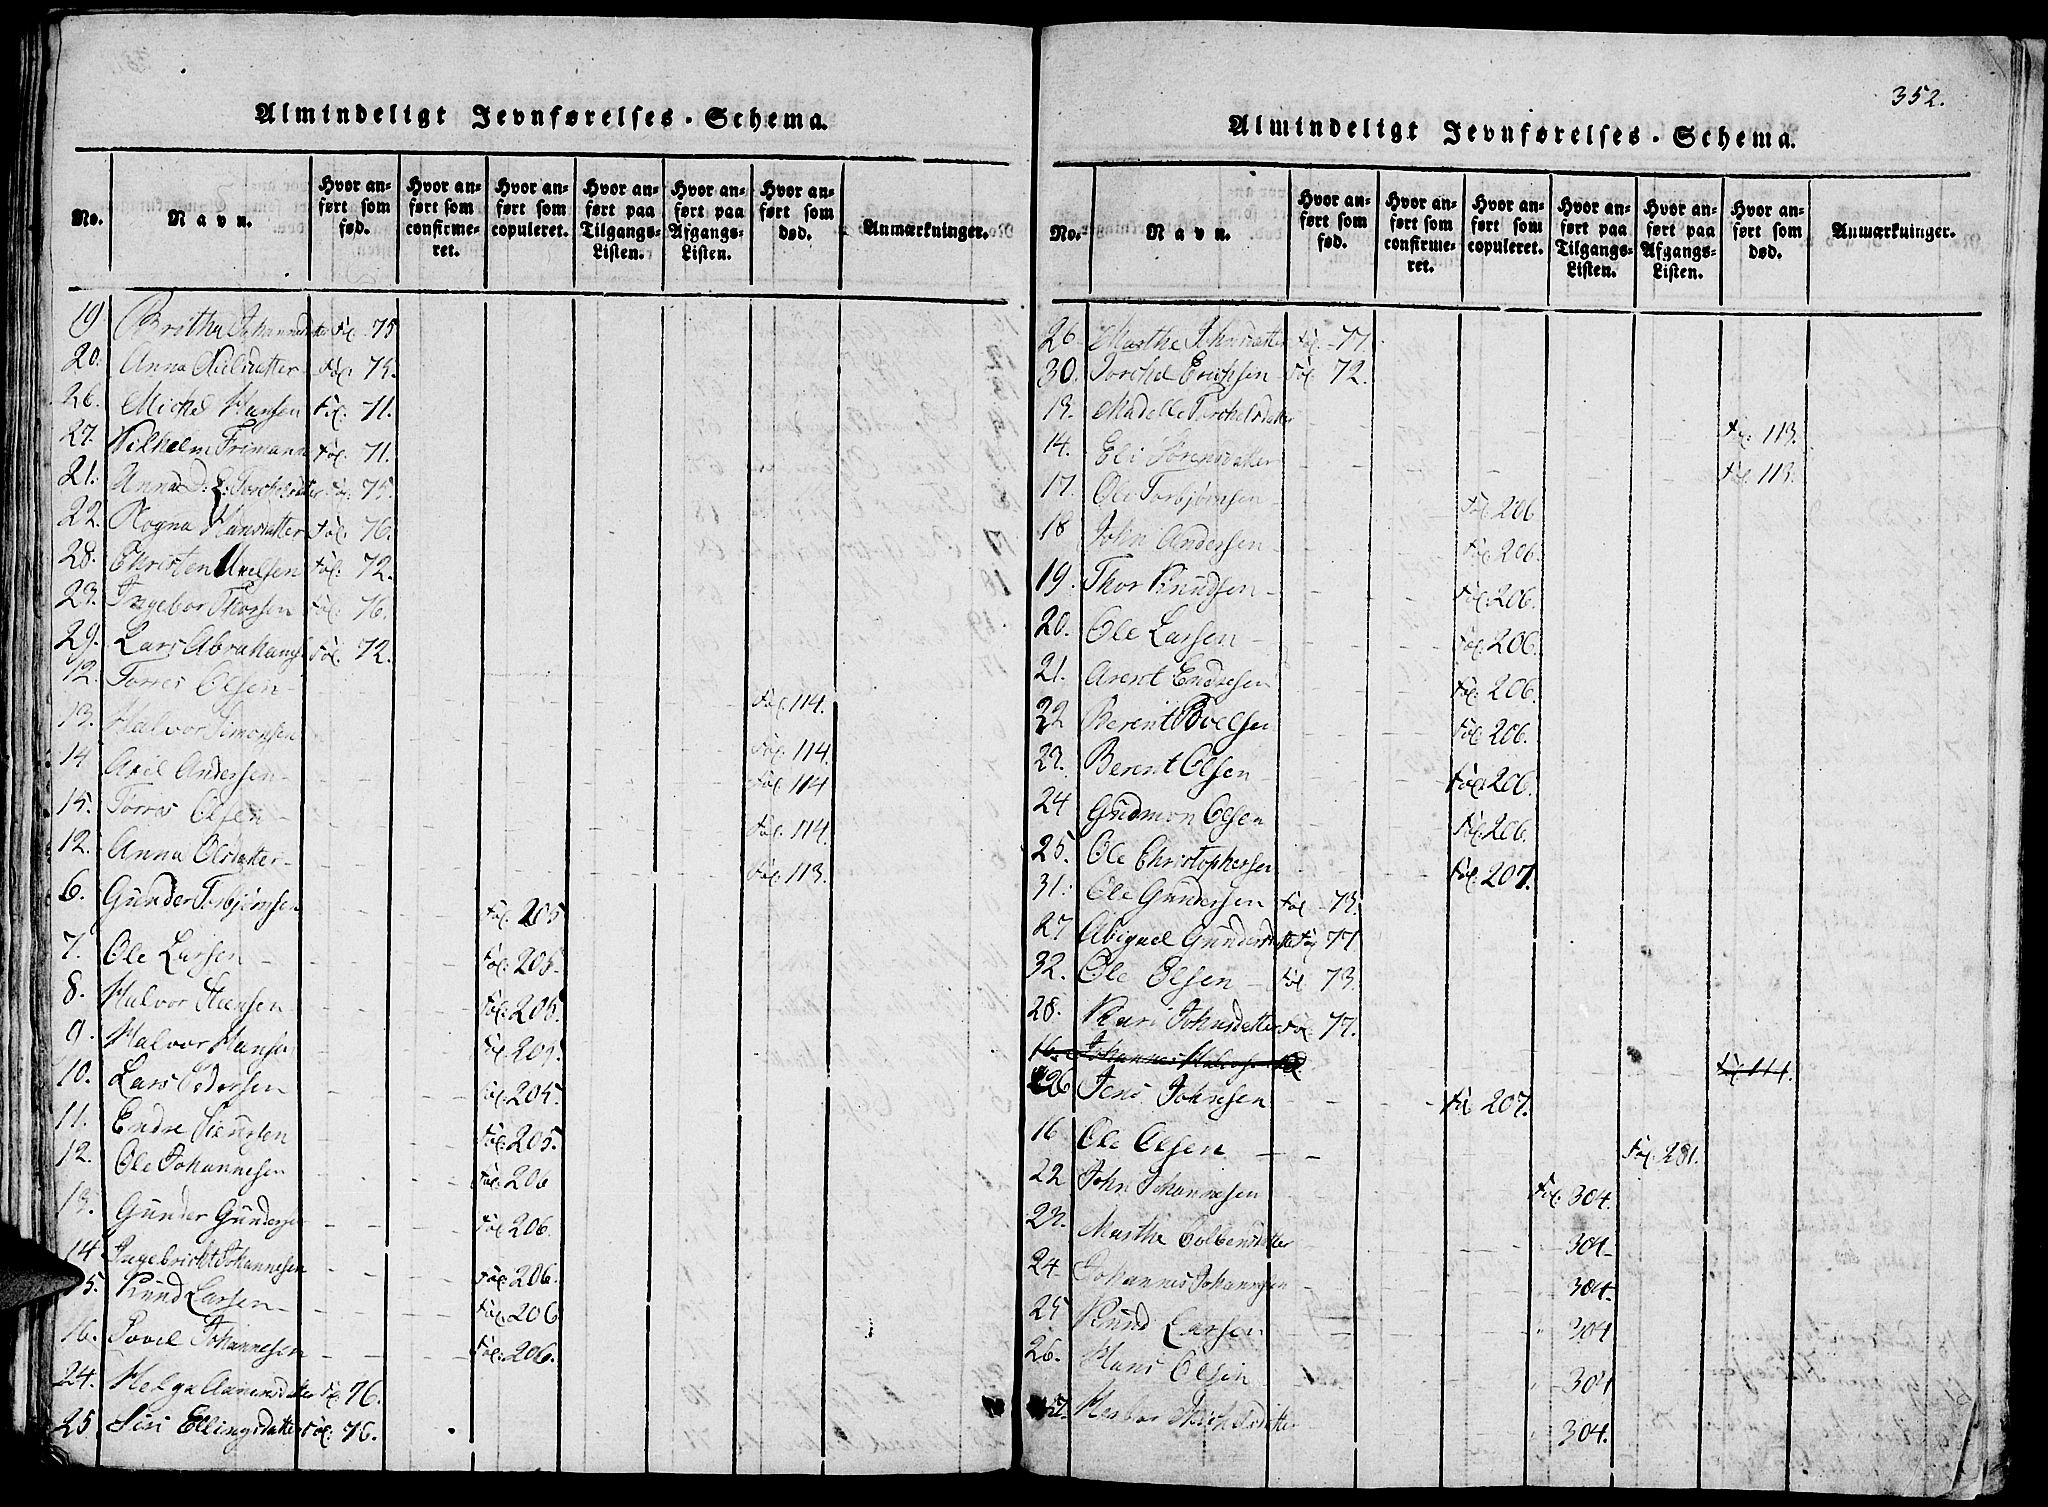 352.
Almindeligt Jevnførelses-Schema.
No. Navn. Hvor anført som fød. Hvor anført som confirmeret. Hvor anført som copuleret. Hvor anført paa Tilgangs-Listen. Hvor anført paa Afgangs-Listen. Hvor anført som død. Anmærkninger.
19 Brithe Johannesdatter Fol. 75
20. Anna Nielsdatter Fol. 75.
26. Michel Hansen Fol. 71.
27. Wilhelm Frimann Fol. 71.
21. Anna D. L. Torchelsdatter Fol. 75.
22. Rogna Hansdatter Fol. 76.
28. Christen Fol. 72.
23. Ingebor Thorsen Fol. 76.
29. Lars Abrahams Fol. 72.
12. Torres Olsen Fol. 114.
13. Halvor Simonsen Fol. 114.
14 Axel Andersen Fol. 114
15. Torres Olsen Fol. 114.
12. Anna Olsdatter Fol. 113.
6. Gunder Torbjørnsen Fol. 205
7. Ole Larsen Fol. 205.
8. Halvor Fol. 205.
9. Halvor Hansen Fol. 205.
10. Lars Pedersen Fol. 205.
11. Endre Fol. 205.
12. Ole Johannesen Fol. 206
13. Gunder Gundersen Fol. 206.
14 Ingebricht Johannesen Fol. 206.
15. Knud Larsen Fol. 206
16. Povel Johannesen Fol. 206.
24. Helga Aanensdatter Fol. 76.
25. Siri Ellingsdatter Fol. 76.
Almindeligt Jevnførelses-Schema.
No. Navn. Hvor anført som fød. Hvor anført som confirmeret. Hvor anført som copuleret. Hvor anført paa Tilgangs-Listen. Hvor anført paa Afgangs-Listen. Hvor anført som død. Anmærkninger.
26. Marthe Johnsdatter Fol. 77.
30. Torchel Erichsen Fol. 72.
13. Madelle Torchelsdatter Fol. 113.
14. Eli Sørensdatter Fol. 113.
17. Ole Torbjørnsen Fol. 206
18 John Andersen Fol. 206.
19. Thor Knudsen Fol. 206.
20. Ole Larsen Fol. 206.
21. Arent Endresen Fol. 206.
22 Berent Poelsen Fol. 206.
23. Berent Olsen Fol. 206.
24 Gudmon Olsen Fol. 206.
25. Ole Christophersen Fol. 207.
31. Ole Gundersen Fol. 73.
27 Abiguel Gundersdatter Fol. 77
32. Ole Olsen Fol. 73.
28. Kari Johnsdatter Fol. 77.
16. Johannes Halvorsen Fol. 114.
26 Jens Johnsen Fol. 207.
16 Ole Olsen Fol. 281.
22 John Johannesen Fol. 304.
23. Marthe Colbensdatter 304
24 Johannes Johannesen " 304.
25 Knud Larsen " 304
26. Hans Olsen " 304
27. " 304.